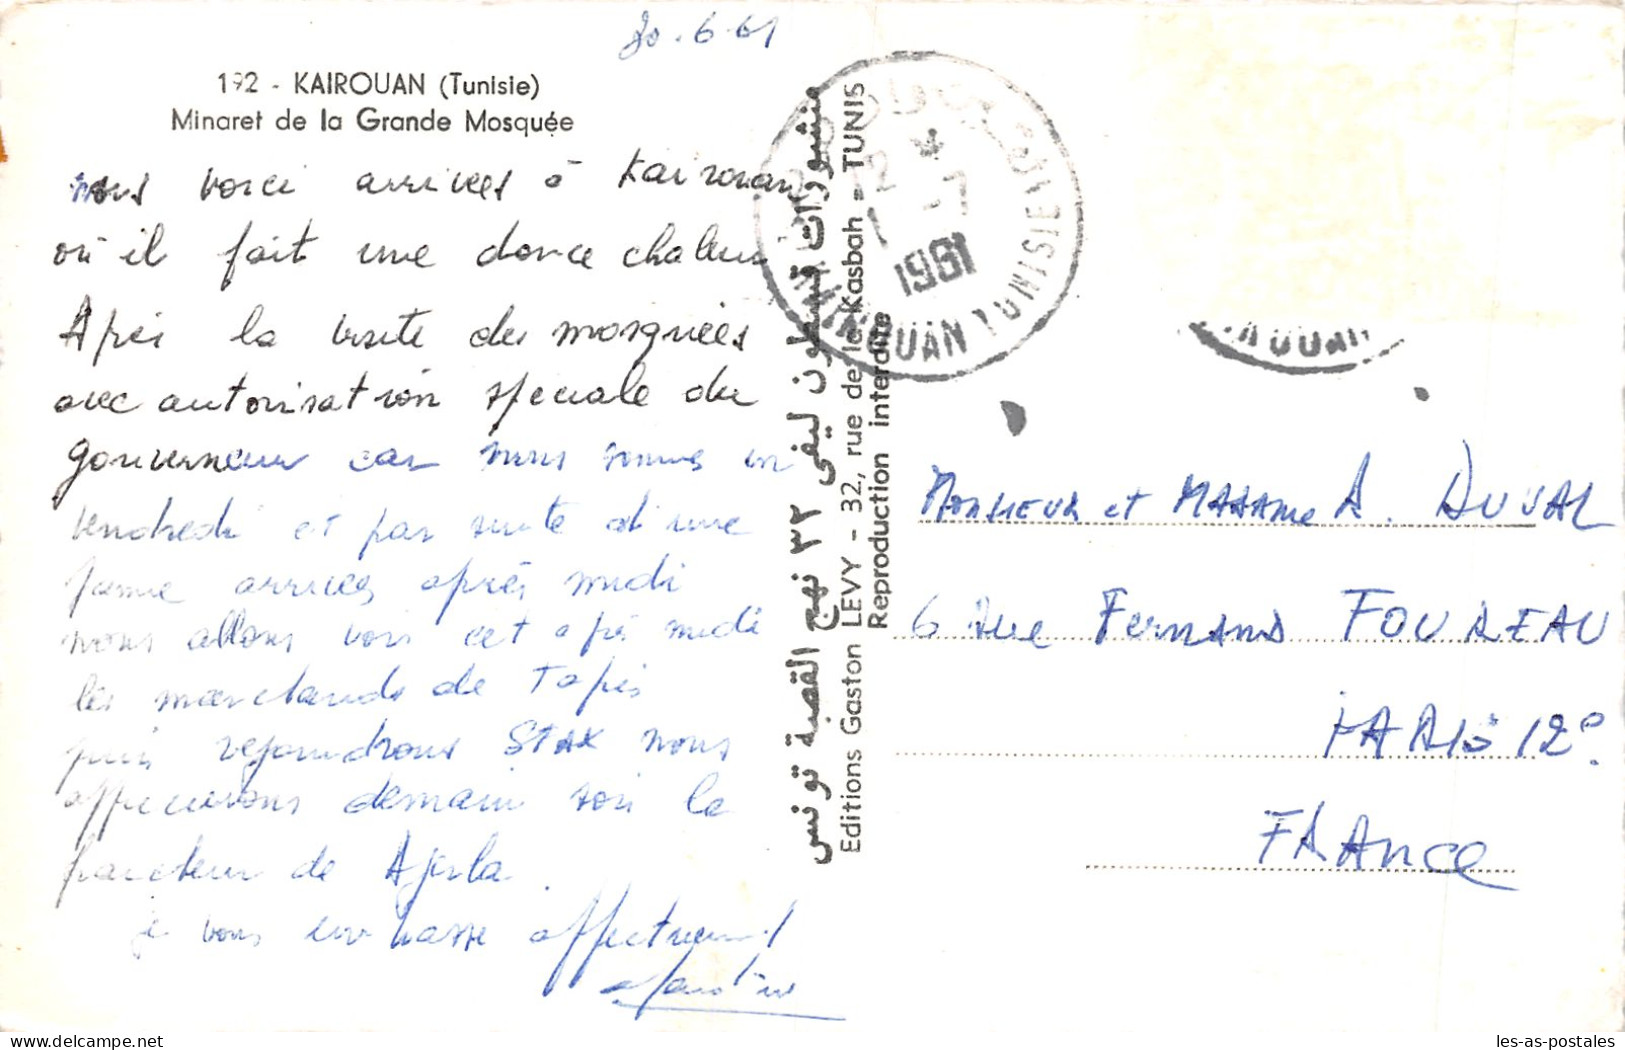 30.6.61
192 - KAIROUAN (Tunisie)
Minaret de la Grande Mosquée
nous voici arrivés à Kairouan
où il fait une douce chaleur
Après la visite des mosquées
avec autorisation speciale du
gouverneur car nous sommes un
vendredi et par suite d'une
panne arrivées après midi
nous allons voir cet après midi
les marchands de Tapis
puis rejoindrons Sfax nous
apprecierons demain soir la
fraicheur de Djerba.
je vous embrasse affectueus
منشورات قسطون ليفي ٣٢ نهج القصبة تونس
Editions Gaston LEVY - 32, rue de la Kasbah - TUNIS
Reproduction interdite
12 *
1 -7
1961
KAIROUAN TUNISIE
KAIROUAN
Monsieur et Madame A. DUVAL
6 rue Fernand FOUREAU
PARIS 12e
FRANCE
les-as-postales